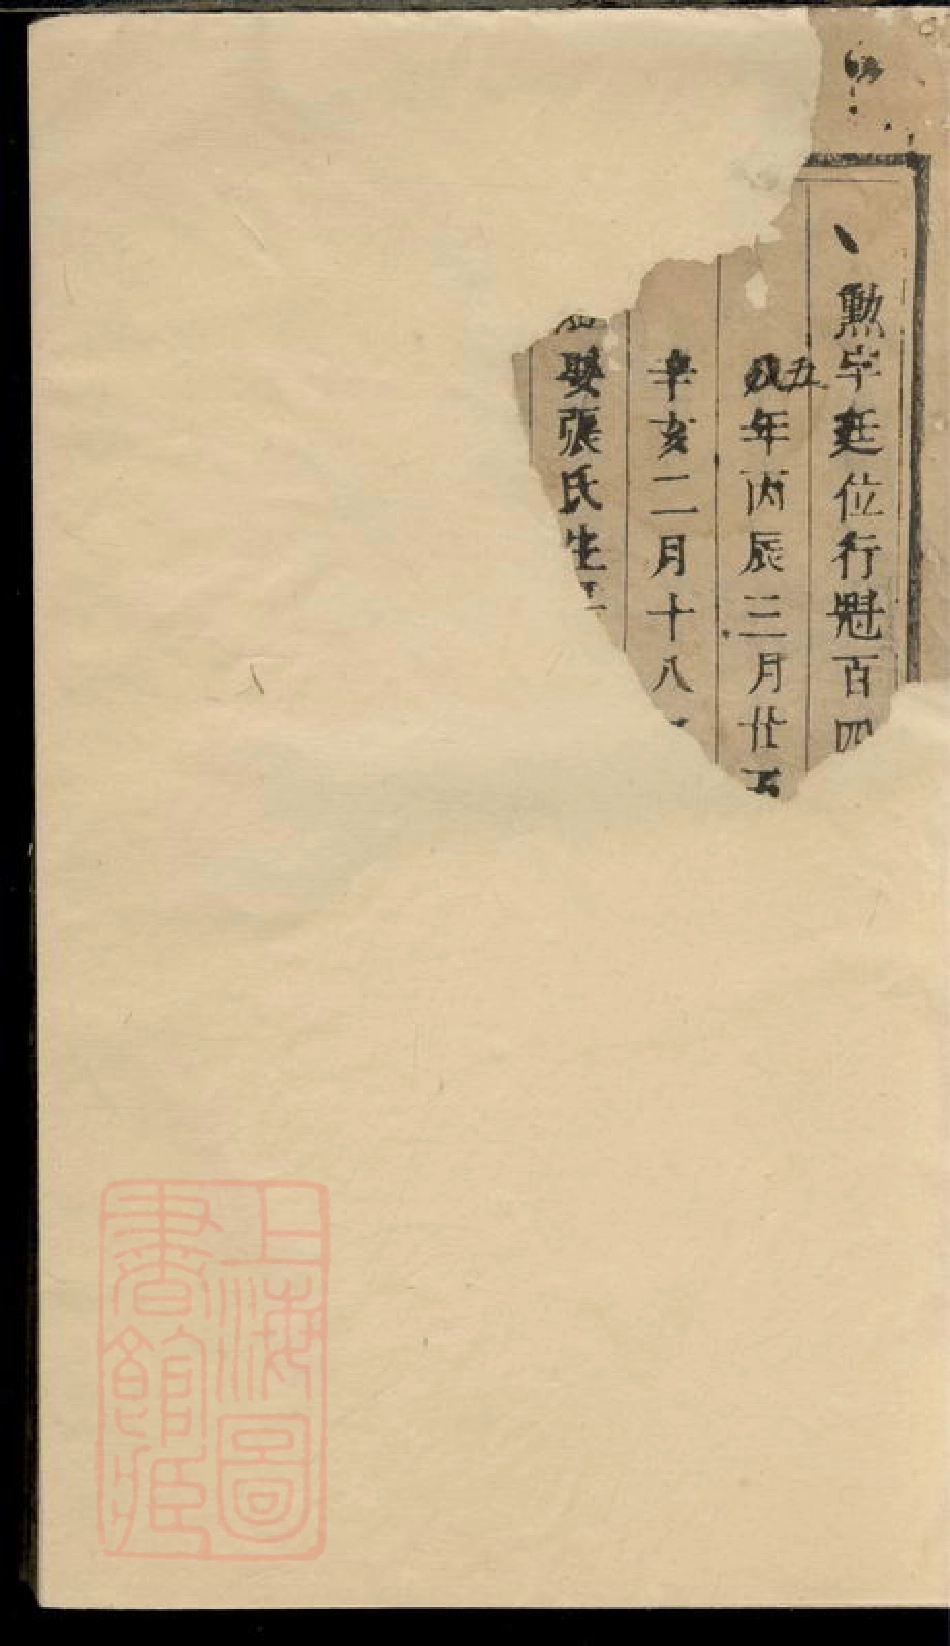 勲字廷位行魁百四
五
年丙辰三月廿五
辛亥二月十八
娶張氏生
上海圖
書館藏